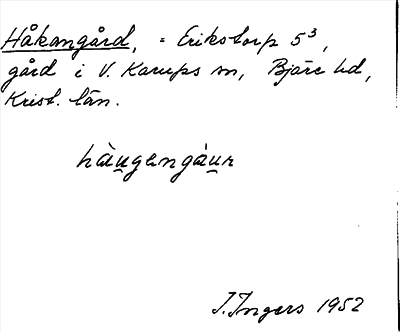 Håkangård, = Erikstorp 5³,
gård i V. Karups sn, Bjäre hd,
Krist. län.
hàu̲gangàu̲r
I. Ingers 1952